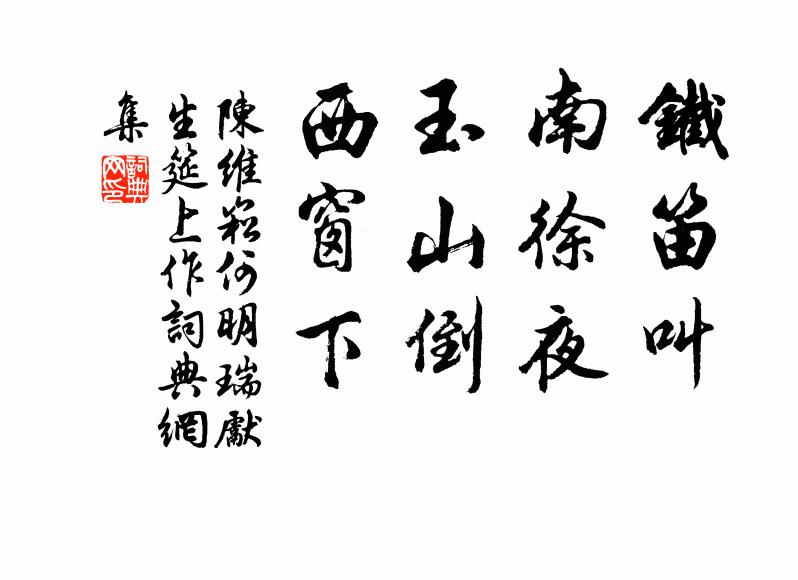 鐵笛叫
南徐夜
玉山倒
西窗下
陳維崧何明瑞獻
生筵上作詞典網
集
詞典網印